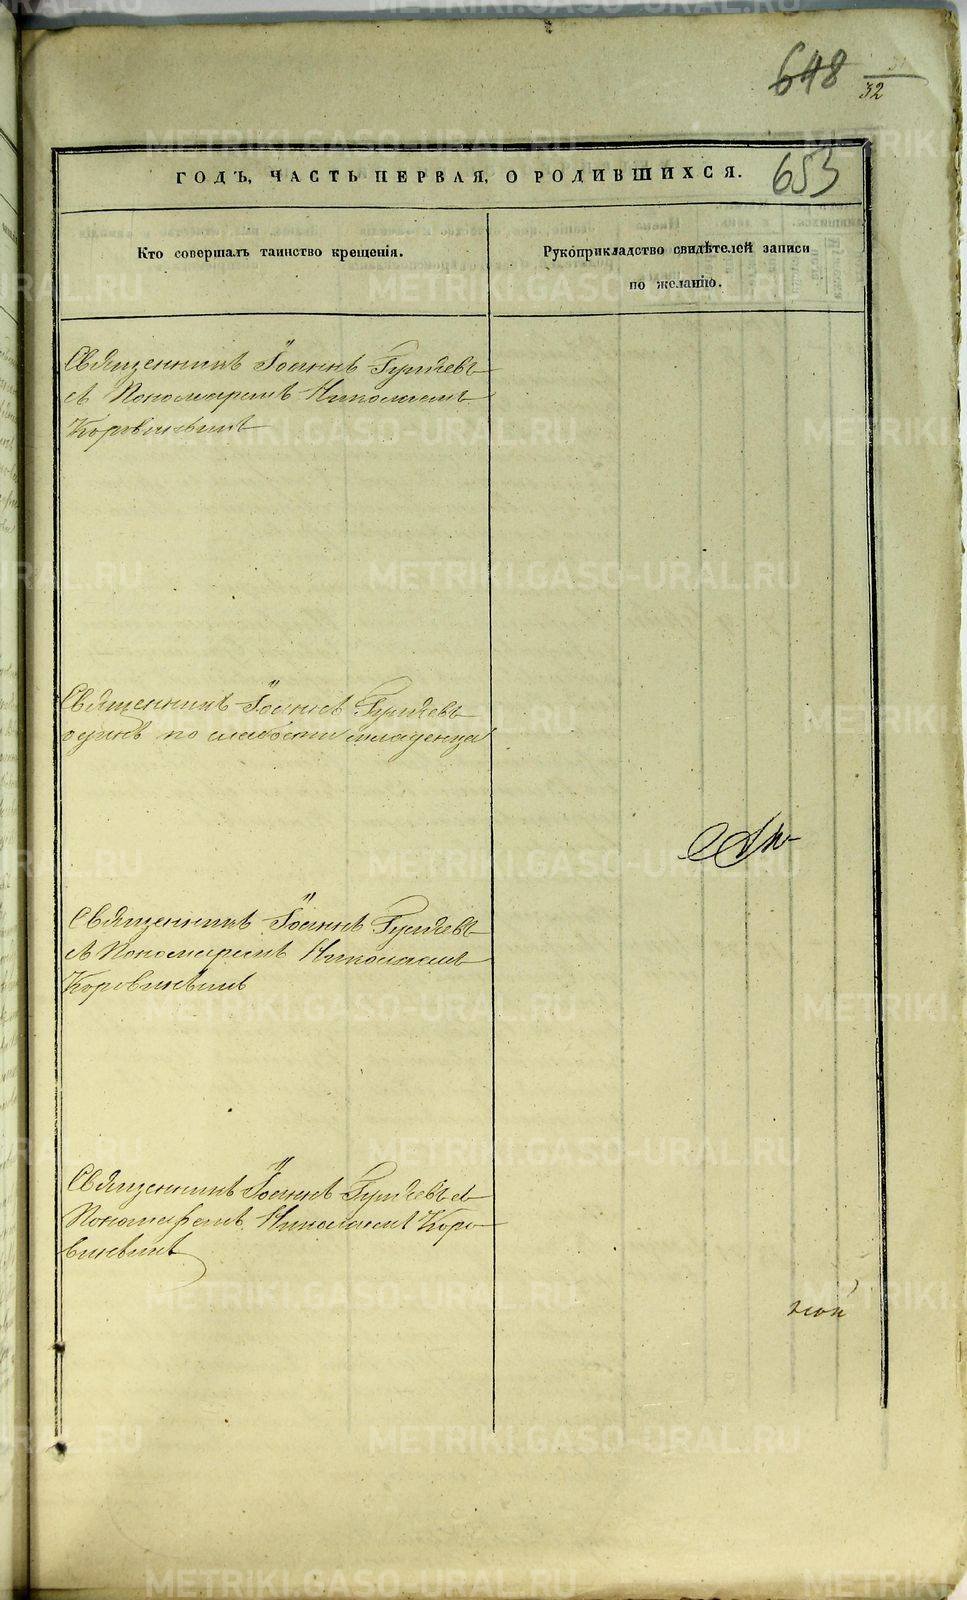 648
32
ГОДЪ, ЧАСТЬ ПЕРВАЯ, О РОДИВШИХСЯ. 653
Кто совершалъ таинство крещенія.
Рукоприкладство свидѣтелей записи
по желанію.
Священникъ Іоаннъ Гуляевъ
съ Пономаремъ Николаемъ
Коровинымъ
Священникъ Іоаннъ Гуляевъ
одинъ по слабости младенца
Священникъ Іоаннъ Гуляевъ
съ Пономаремъ Николаемъ
Коровинымъ
Священникъ Іоаннъ Гуляевъ съ
Пономаремъ Николаемъ Коро-
винымъ
METRIKI.GASO-URAL.RU